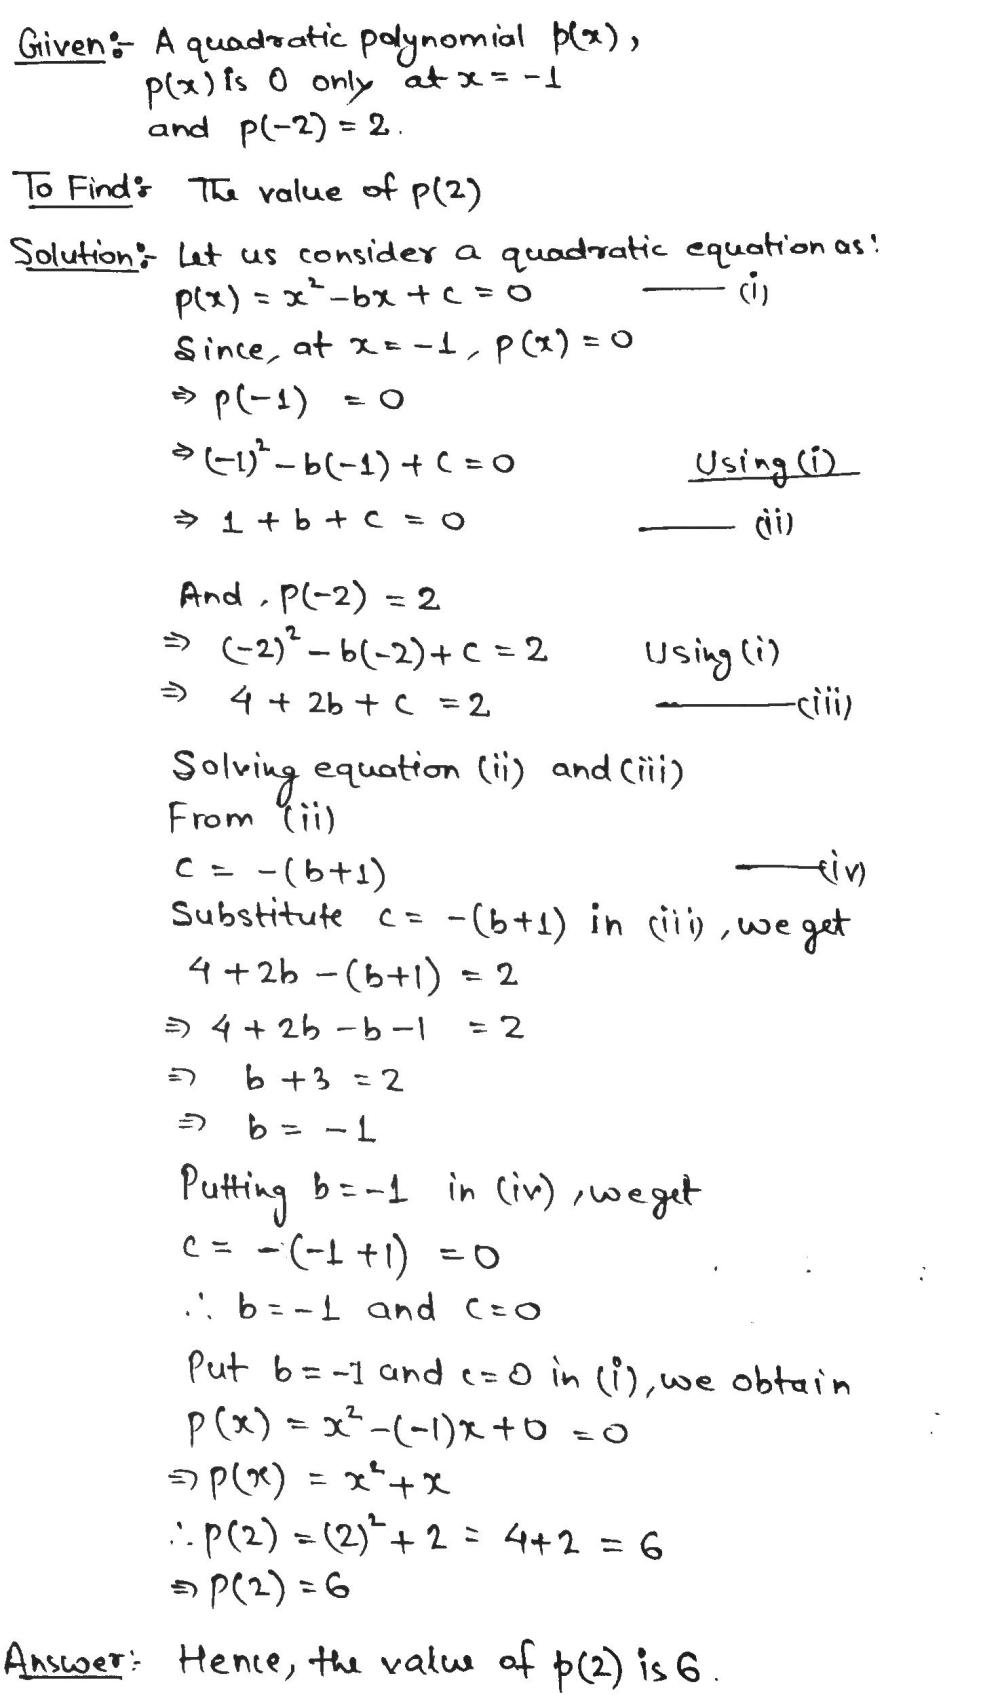 Given:- A quadratic polynomial p(x),
p(x) is 0 only at x = -1
and p(-2) = 2.
To Find:- The value of p(2)
Solution:- Let us consider a quadratic equation as:
p(x) = x² - bx + c = 0 —— (i)
Since, at x = -1, p(x) = 0
⇒ p(-1) = 0
⇒ (-1)² - b(-1) + c = 0 Using (i)
⇒ 1 + b + c = 0 —— (ii)
And, p(-2) = 2
⇒ (-2)² - b(-2) + c = 2 Using (i)
⇒ 4 + 2b + c = 2 —— (iii)
Solving equation (ii) and (iii)
From (ii)
c = -(b+1) —— (iv)
Substitute c = -(b+1) in (iii), we get
4 + 2b - (b+1) = 2
⇒ 4 + 2b - b - 1 = 2
⇒ b + 3 = 2
⇒ b = -1
Putting b = -1 in (iv), we get
c = -(-1 + 1) = 0
∴ b = -1 and c = 0
Put b = -1 and c = 0 in (i), we obtain
p(x) = x² - (-1)x + 0 = 0
⇒ p(x) = x² + x
∴ p(2) = (2)² + 2 = 4+2 = 6
⇒ p(2) = 6
Answer:- Hence, the value of p(2) is 6.